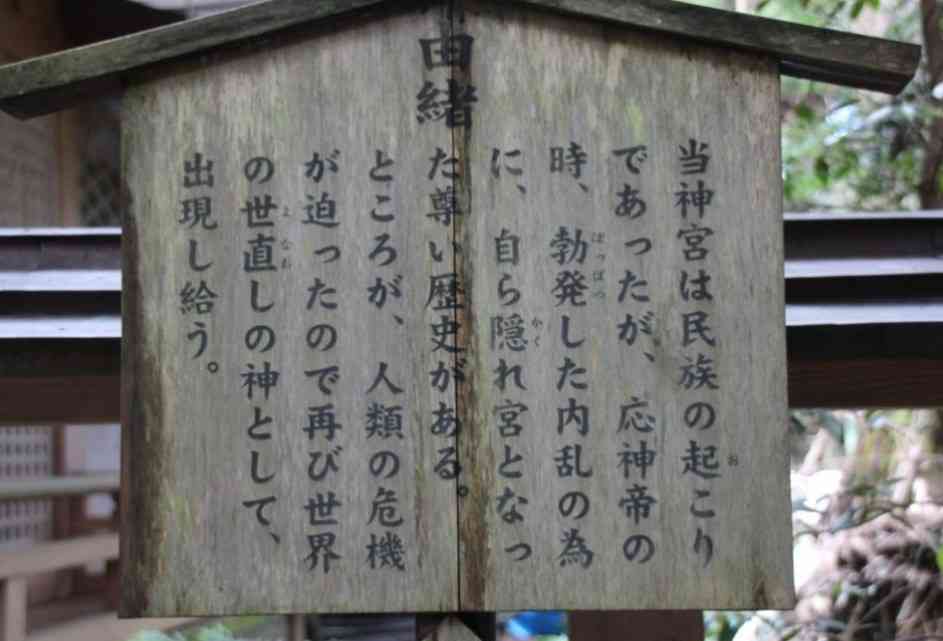 由緒
当神宮は民族の起こり
であったが、応神帝の
時、勃発した内乱の為
に、自ら隠れ宮となっ
た尊い歴史がある。
ところが、人類の危機
が迫ったので再び世界
の世直しの神として、
出現し給う。